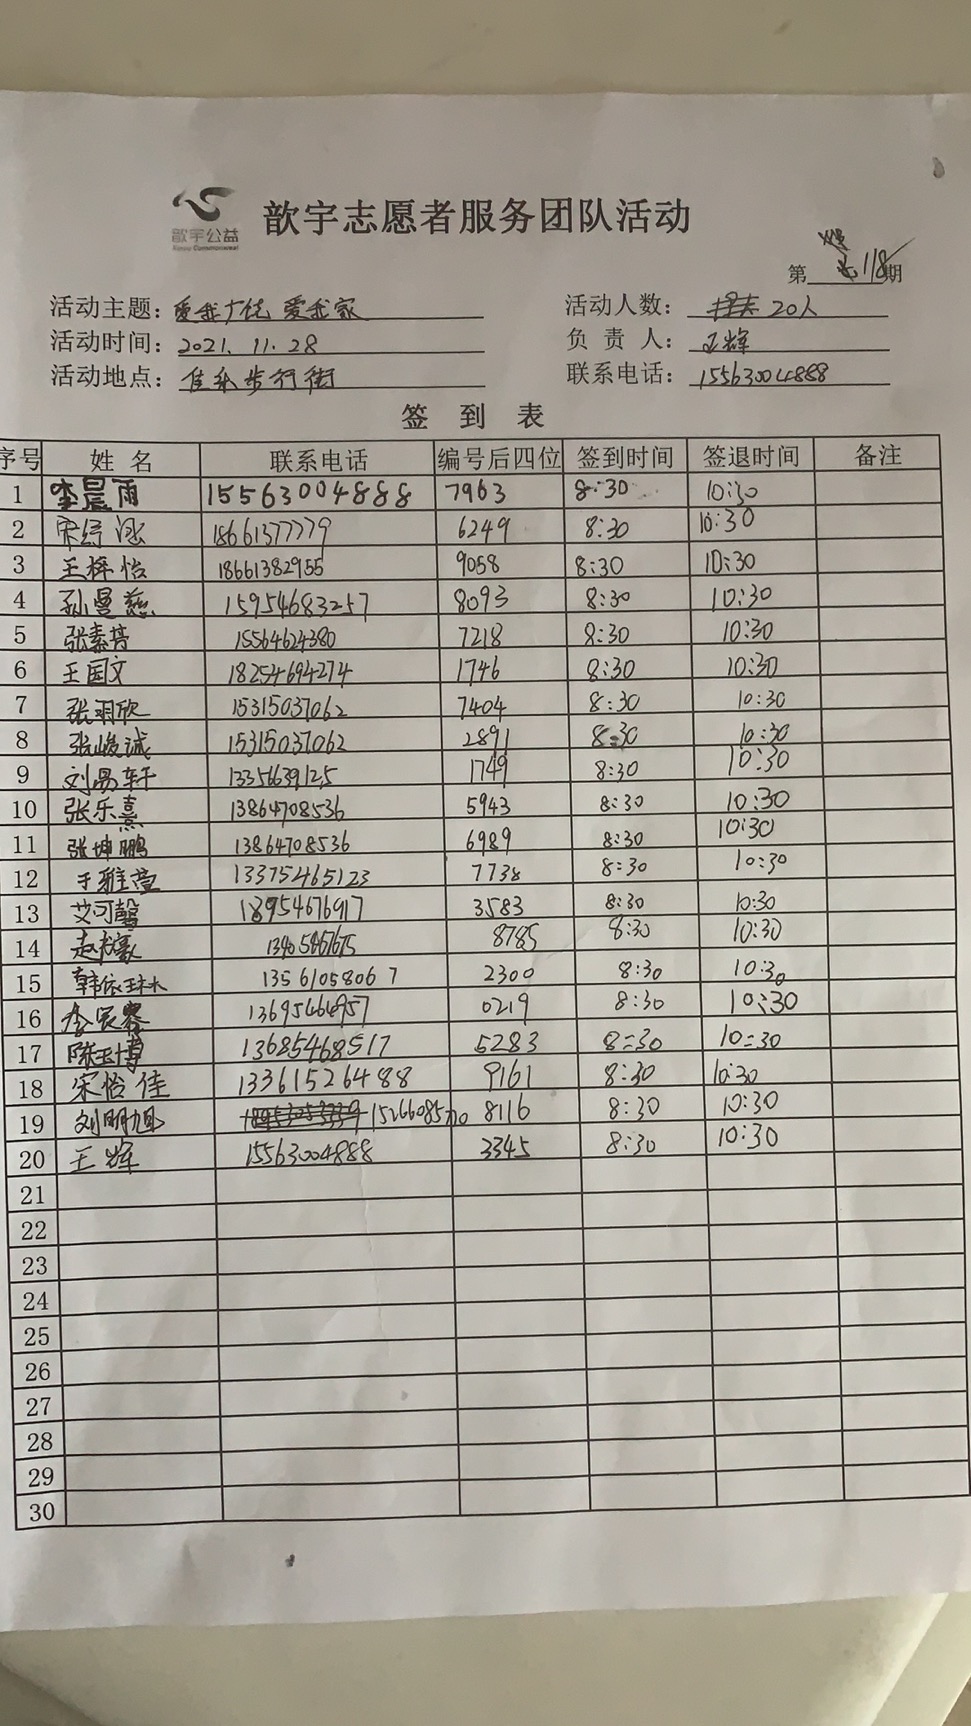 歆宇公益
歆宇志愿者服务团队活动
第 118期
活动主题：爱我广饶 爱我家 活动人数：20人
活动时间：2021.11.28 负责人：王辉
活动地点：佳乐步行街 联系电话：15563004888
签到表
序号 姓名 联系电话 编号后四位 签到时间 签退时间 备注
1 李晨雨 15563004888 7963 8:30 10:30
2 18661377779 6249 8:30 10:30
3 王梓怡 18661382955 9058 8:30 10:30
4 孙曼慈 15954683257 8093 8:30 10:30
5 张素芳 15564624380 7218 8:30 10:30
6 王国文 18254694274 1746 8:30 10:30
7 张羽欣 15315037062 7404 8:30 10:30
8 张峻诚 15315037062 2891 8:30 10:30
9 刘易轩 13356639125 1749 8:30 10:30
10 张乐熹 13864708536 5943 8:30 10:30
11 张坤鹏 13864708536 6989 8:30 10:30
12 于雅萱 13375465123 7738 8:30 10:30
13 艾可馨 18954676917 3583 8:30 10:30
14 8785 8:30 10:30
15 韩依琳 13561058067 2300 8:30 10:30
16 13695464957 0219 8:30 10:30
17 陈玉博 13685468517 5283 8:30 10:30
18 宋怡佳 13361526488 9161 8:30 10:30
19 刘明旭 15266085710 8116 8:30 10:30
20 王辉 15563004888 3345 8:30 10:30
21
22
23
24
25
26
27
28
29
30